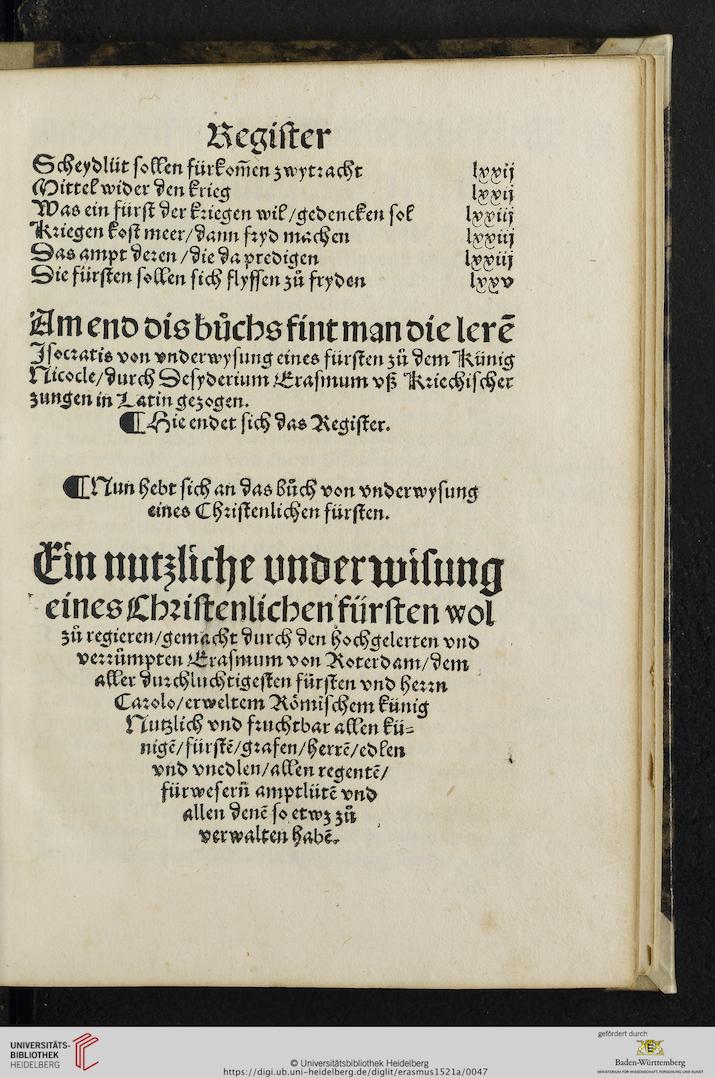 Register
Scheydlüt sollen fürkom̄en zwytracht lxxij
Mittel wider den krieg lxxij
Was ein fürst der kriegen wil/gedencken sol lxxiij
Kriegen kost meer/dann fryd machen lxxiij
Das ampt deren/die da predigen lxxiij
Die fürsten sollen sich flyssen zů fryden lxxv
Am end dis bůchs fint man die lerē
Jsocratis von vnderwysung eines fürsten zů dem Künig
Nicocle/durch Desyderium Erasmum vß Kriechischer
zungen in Latin gezogen.
¶ Hie endet sich das Register.
¶ Nun hebt sich an das bůch von vnderwysung
eines Christenlichen fürsten.
Ein nutzliche underwisung
eines Christenlichen fürsten wol
zů regieren/gemacht durch den hochgelerten vnd
verrůmpten Erasmum von Roterdam/dem
aller durchluchtigesten fürsten vnd herrn
Carolo/erweltem Römischem künig
Nutzlich vnd fruchtbar allen kü⸗
nigē/fürstē/grafen/herrē/edlen
vnd vnedlen/allen regentē/
fürwesern̄ amptlütē vnd
allen denē so etwz zů
verwalten habē.
UNIVERSITÄTS-
BIBLIOTHEK
HEIDELBERG
© Universitätsbibliothek Heidelberg
https://digi.ub.uni-heidelberg.de/diglit/erasmus1521a/0047
gefördert durch
Baden-Württemberg
MINISTERIUM FÜR WISSENSCHAFT, FORSCHUNG UND KUNST